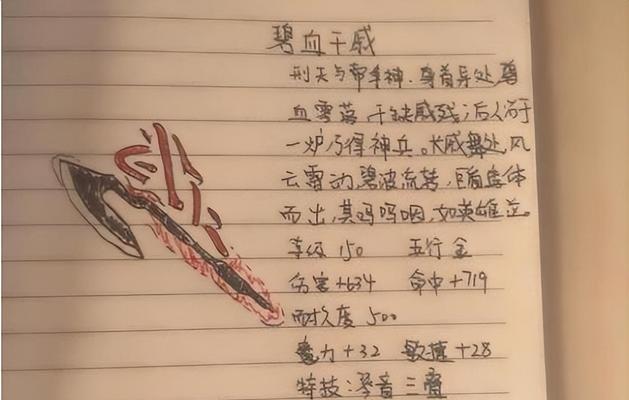 碧血干戚
刑天与帝争神.身首异处,碧
血零落,干缺戚残;后人溶于
一炉乃得神兵。长戚舞处,风
云雷动,碧波流转,体
而出,其鸣呜咽,如英雄泣。
等级 150 五行 金
伤害+634 命中+719
耐久度 500
魔力+32 敏捷+28
特技:琴音三叠